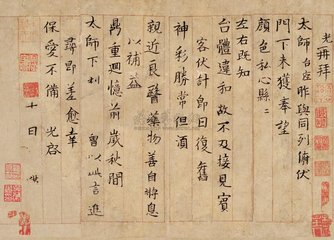 光再拜
太師台座昨與同列俯伏
門下未獲奉望
顏色私心縣縣
左右既知
台體違和故不及接見小賓
客伏計即日復舊
神彩勝常但須
親近良醫藥物善自將息
以補益
鼎重迴憶前歲秋間
太師下利 曾以此言進
尋即差愈幸
保愛不備 光啓
十日